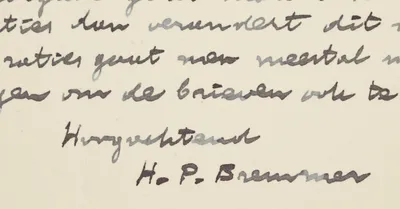 ties dan verandert dit
raties gaat men meestal
gen om de brieven ook te
Hoogachtend
H. P. Bremmer